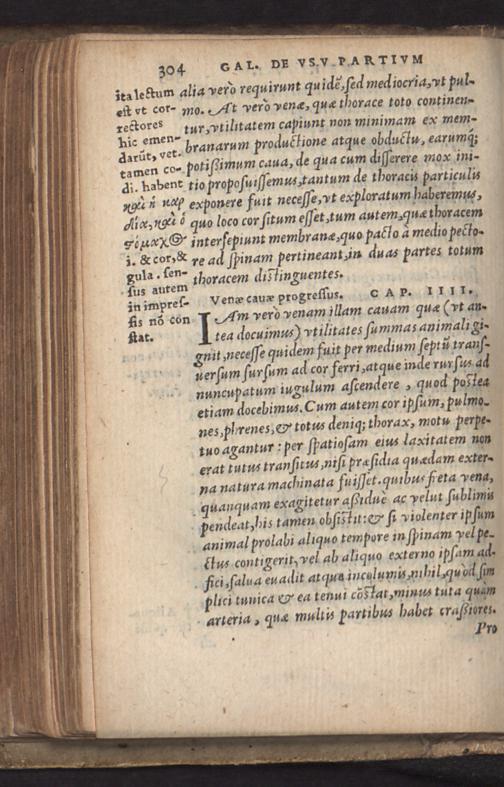 304 GAL. DE VSV PARTIVM
ita lectum
est vt cor-
rectores
hic emen-
darūt, vet.
tamen co-
di. habent
καὶ ἡ καρ
δία, καὶ ὁ
στόμαχος
i. & cor, &
gula. sen-
sus autem
in impres-
sis nō con
stat.
alia verò requirunt quidē, sed mediocria, vt pul-
mo. At verò venæ, quæ thorace toto continen-
tur, vtilitatem capiunt non minimam ex mem-
branarum productione atque obductu, earumq;
potißimum caua, de qua cum disserere mox ini-
tio proposuissemus, tantum de thoracis particulis
exponere fuit necesse, vt exploratum haberemus,
quo loco cor situm esset, tum autem, quæ thoracem
intersepiunt membranæ, quo pacto à medio pecto-
re ad spinam pertineant, in duas partes totum
thoracem distinguentes.
Venæ cauæ progressus. CAP. IIII.
IAm verò venam illam cauam quæ (vt an-
tea docuimus) vtilitates summas animali gi-
gnit, necesse quidem fuit per medium septū trans-
uersum sursum ad cor ferri, atque inde rursus ad
nuncupatum iugulum ascendere, quod postea
etiam docebimus. Cum autem cor ipsum, pulmo-
nes, phrenes, & totus deniq; thorax, motu perpe-
tuo agantur: per spatiosam eius laxitatem non
erat tutus transitus, nisi præsidia quædam exter-
na natura machinata fuisset. quibus freta vena,
quanquam exagitetur aßiduè ac velut sublimis
pendeat, his tamen obsistit: & si violenter ipsum
animal prolabi aliquo tempore in spinam vel pe-
ctus contigerit, vel ab aliquo externo ipsam ad-
fici, salua euadit atque incolumis, nihil, quòd sim
plici tunica & ea tenui cōstat, minus tuta quàm
arteria, quæ multis partibus habet craßiores.
Pro